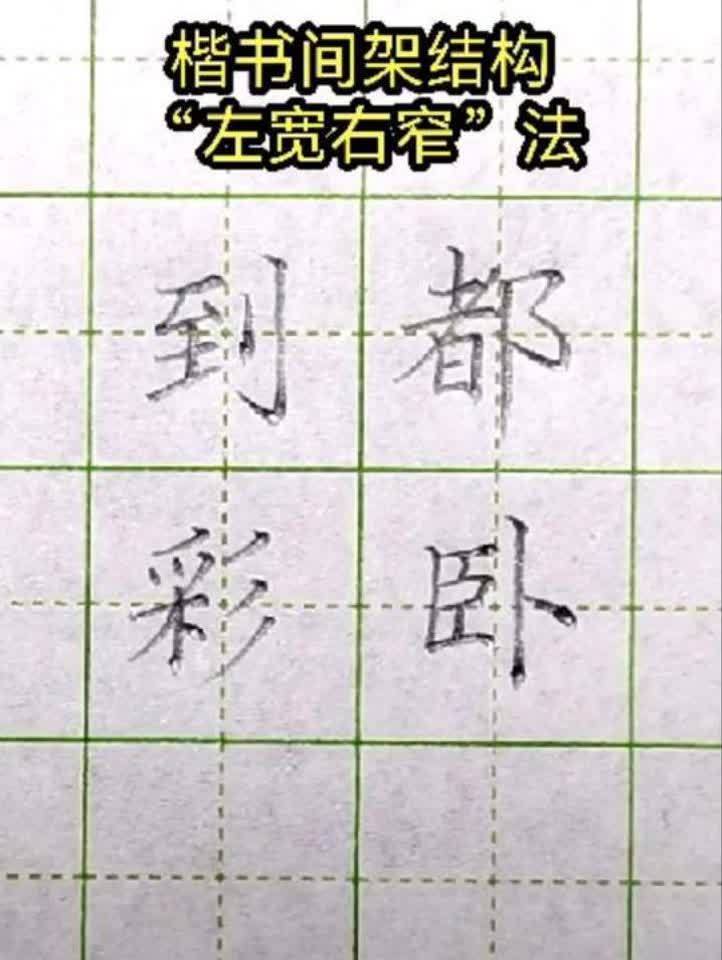 楷书间架结构
“左宽右窄”法
到都
彩卧